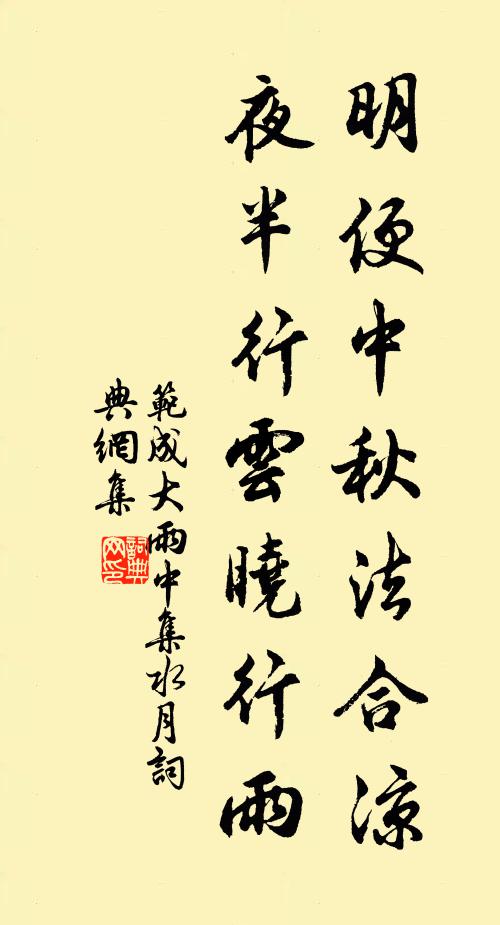 明便中秋法合涼
夜半行雲曉行雨
範成大雨中集水月詞
典網集
詞典
网印